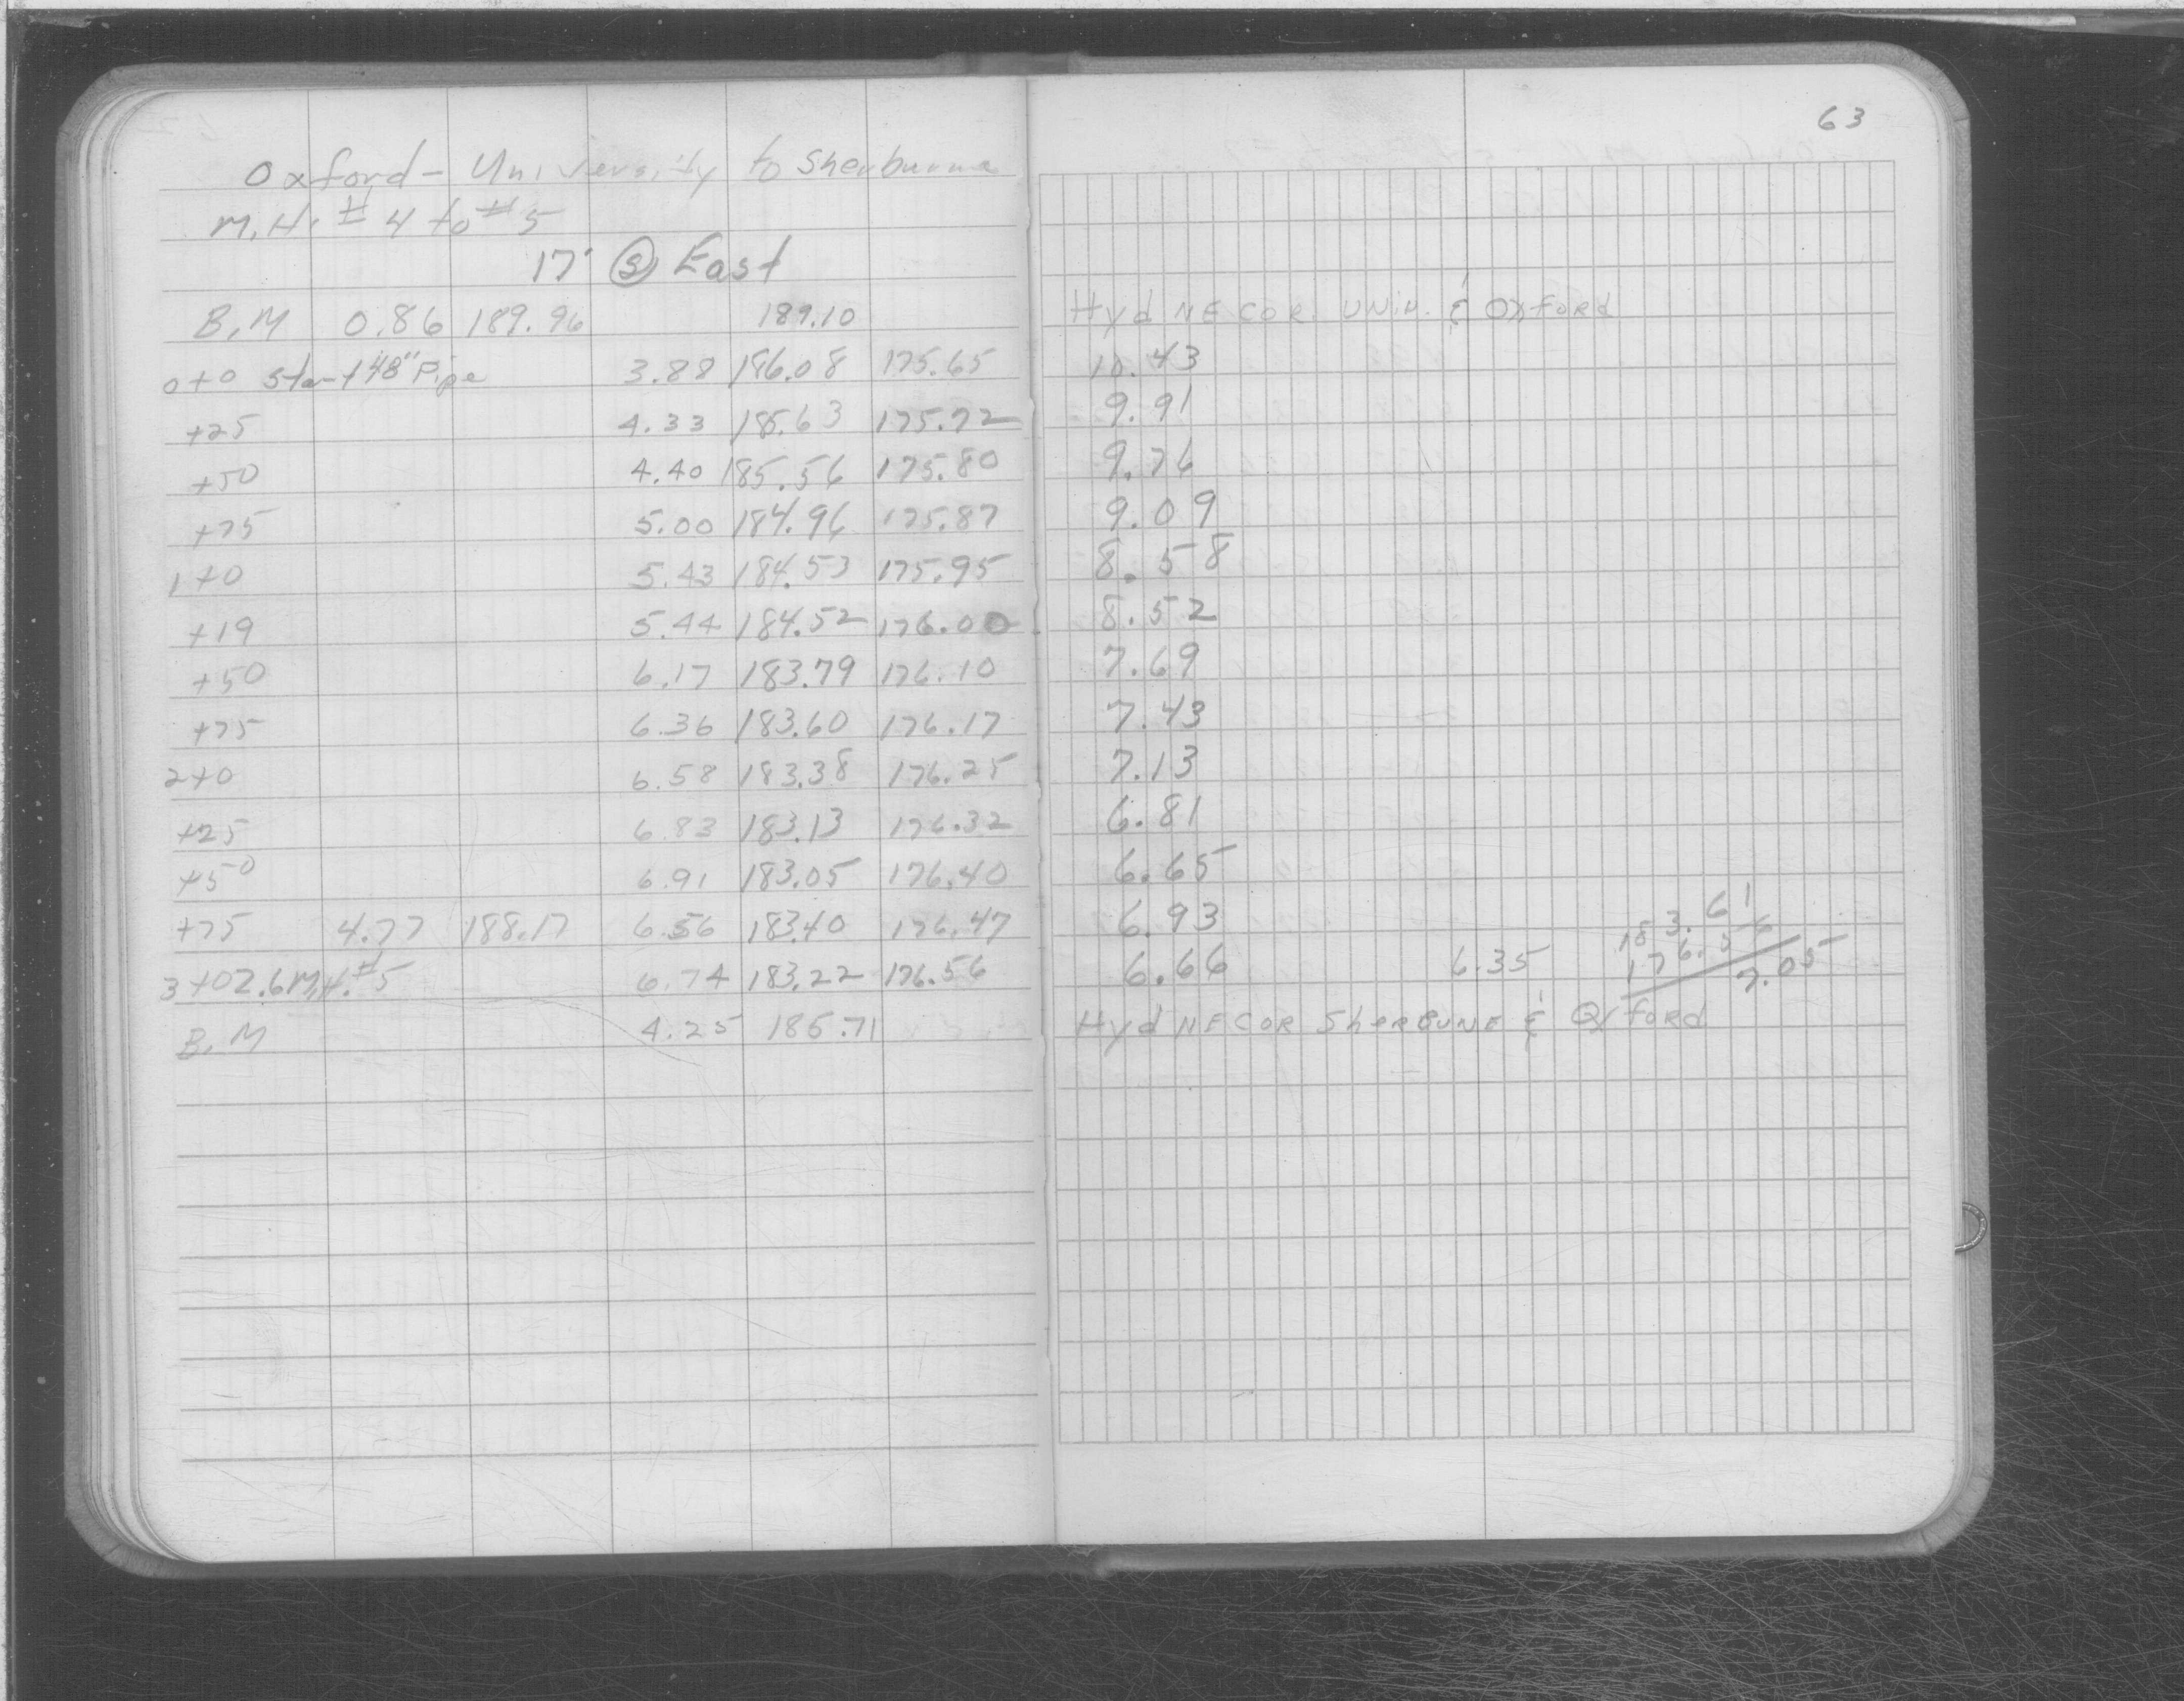 63
Oxford - University to Sherburne
M.H. # 4 to # 5
17' Ⓢ East
B.M 0.86 189.96 189.10 Hyd NE COR. UNIV. & OXFORD
0+0 Start 48" Pipe 3.88 186.08 175.65 10.43
+25 4.33 185.63 175.72 9.91
+50 4.40 185.56 175.80 9.76
+75 5.00 184.96 175.87 9.09
1+0 5.43 184.53 175.95 8.58
+19 5.44 184.52 176.00 8.52
+50 6.17 183.79 176.10 7.69
+75 6.36 183.60 176.17 7.43
2+0 6.58 183.38 176.25 7.13
+25 6.83 183.13 176.32 6.81
+50 6.91 183.05 176.40 6.65
+75 4.77 188.17 6.56 183.40 176.47 6.93 183.61
3+02.6 M.H. #5 6.74 183.22 176.56 6.66 6.35 176.56 7.05
B.M 4.25 185.71 Hyd NE COR SHERBUNE & OXFORD